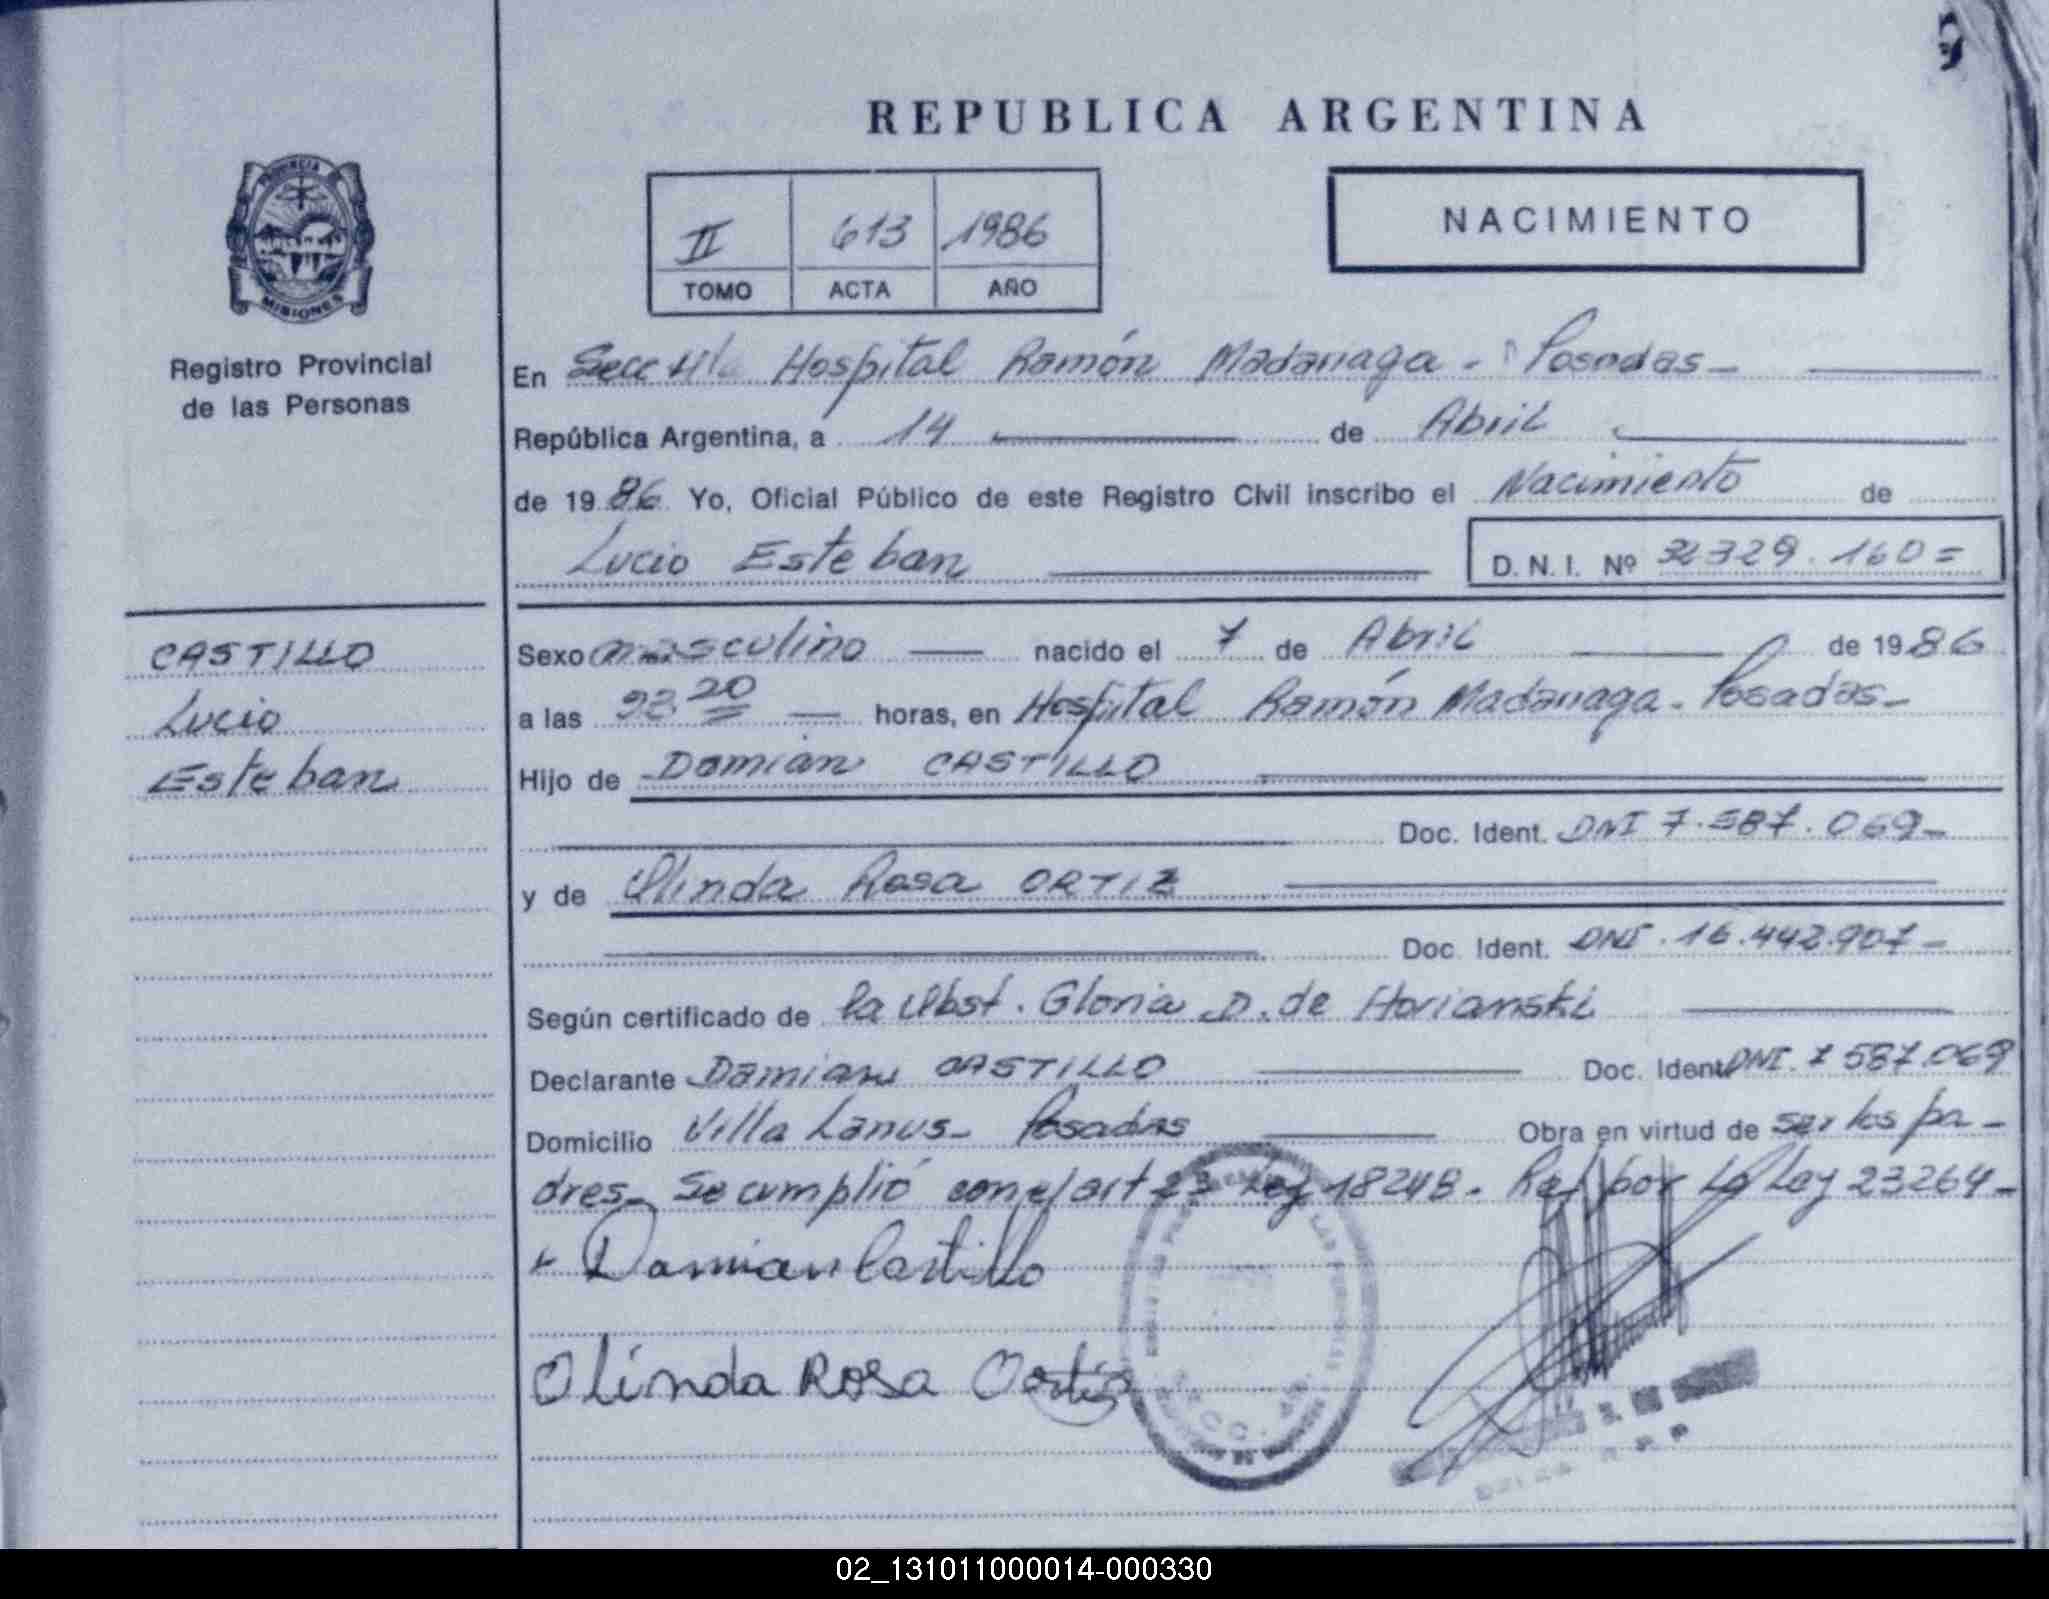 REPUBLICA ARGENTINA
PROVINCIA DE
MISIONES
Registro Provincial
de las Personas
II 613 1986
TOMO ACTA AÑO
NACIMIENTO
En Secc Hospital Ramón Madariaga - Posadas -
República Argentina, a 14 de Abril
de 1986 Yo, Oficial Público de este Registro Civil inscribo el Nacimiento de
Lucio Esteban D. N. I. Nº 32329.160=
CASTILLO
Lucio
Esteban
Sexo masculino nacido el 7 de Abril de 1986
a las 23.20 horas, en Hospital Ramón Madariaga - Posadas -
Hijo de Damián CASTILLO
Doc. Ident. DNI 7.587.069-
y de Olinda Rosa ORTIZ
Doc. Ident. DNI. 16.442.907-
Según certificado de la Obst. Gloria D. de Horianski
Declarante Damian CASTILLO Doc. Ident. DNI. 7 587.069
Domicilio Villa Lanus - Posadas Obra en virtud de ser los pa-
dres - Se cumplió con el art 23 Ley 18248 - Ref por La Ley 23264 -
Damian Castillo
Olinda Rosa Ortiz
02_131011000014-000330